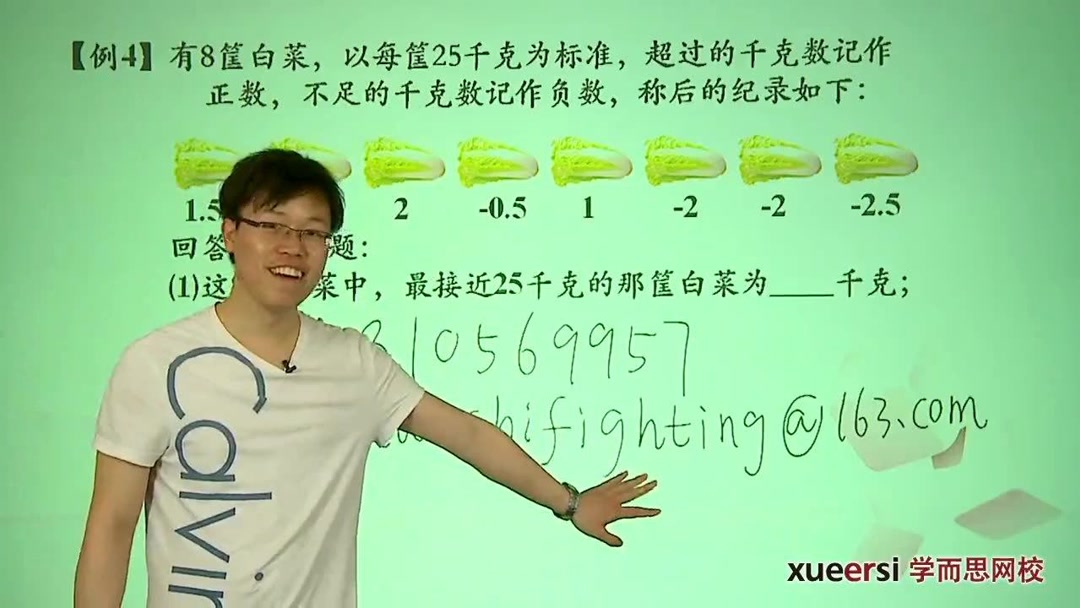 【例4】有8筐白菜，以每筐25千克为标准，超过的千克数记作
正数，不足的千克数记作负数，称后的纪录如下：
1.5 2 -0.5 1 -2 -2 -2.5
回答 题：
(1)这 菜中，最接近25千克的那筐白菜为____千克；
10569957
hifighting@163.com
Calvin
xueersi 学而思网校